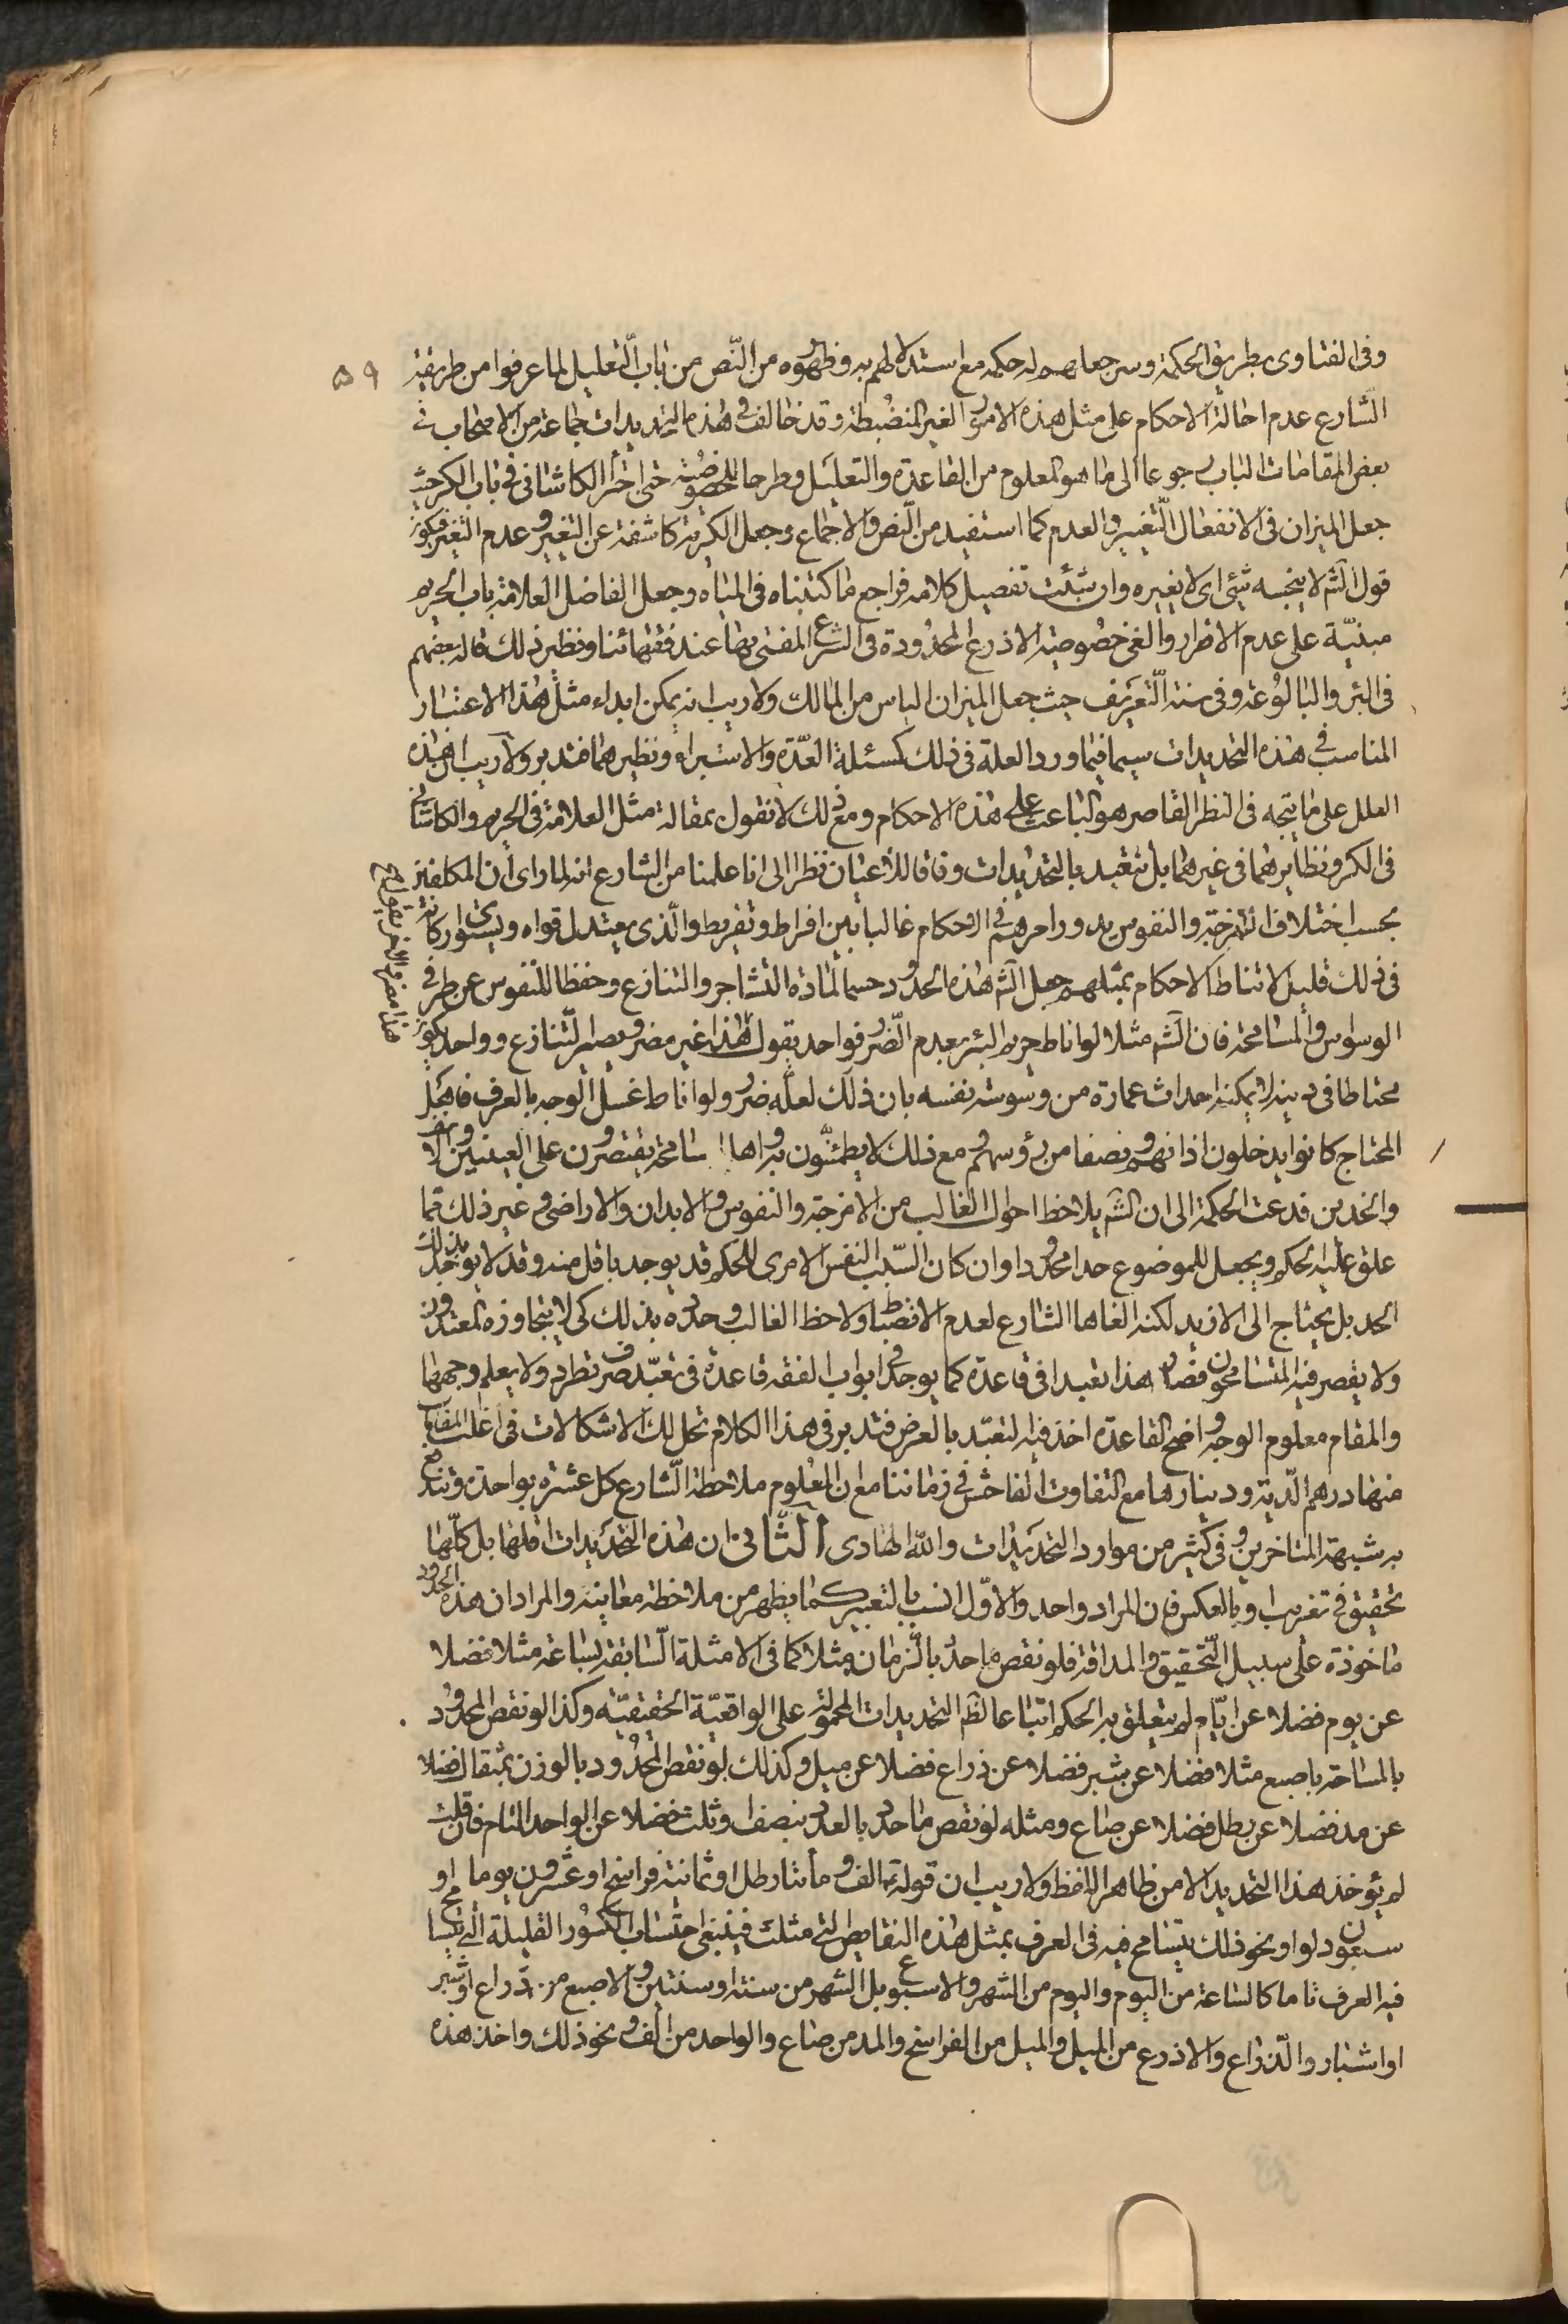 ٥٩
وفى الفتاوى بطريق الحكمة وسر جعلهم له حكمة مع استدلالهم به وظهوره من النّص من باب التعليل لما عرفوا من طريقة
الشارع عدم احالة الاحكام على مثل هذه الامور الغير المنضبطة وقد خالف فى هذه التحديدات جماعة من الاصحاب فى
بعض المقامات الباب رجوعا الى ما هو المعلوم من القاعدة والتعليل وطرحا للخصوصية حتى اجترأ الكاشانى فى باب الكر حيث
جعل الميزان فى الانفعال التغيير والعدم كما استفيد من النص والاجماع وجعل الكرية كاشفة عن التغيير وعدم التغير فيكون
قول الشم لا ينجسه شئ اى لا يغيره وان شئت تفصيل كلامه فراجع ما كتبناه فى المياه وجعل الفاضل العلامة باب الحريم
مبنيّة على عدم الاضرار والغى خصوصية الاذرع المحدودة فى الشرع المفتى بها عند فقهائنا ونظير ذلك قاله بعضهم
فى البئر والبالوعة وفى سنة التعريف حيث جعل الميزان الياس من المالك ولا ريب انه يمكن ابداء مثل هذا الاعتبار
المناسب فى هذه التحديدات سيما فيما ورد العلة فى ذلك كمسئلة العدة والاستبراء ونظيرهما فتدبر ولا ريب ان هذه
العلل على ما يتجه فى النظر القاصر هو الباعث على هذه الاحكام ومع ذلك لا نقول بمقالة مثل العلامة فى الحريم والكاشانى
فى الكر ونظايرهما فى غيرهما بل نتعبد بالتحديدات وفاقا للاعيان نظرا الى انا علمنا من الشارع انه لما راى ان المكلفين
بحسب اختلاف الامزجة والنفوس يدور امرهم فى الاحكام غالبا بين افراط وتفريط والّذى يعتدل قواه ويستوى اركانه
فى ذلك قليل لا تناط الاحكام بمثلهم جعل الشم هذه الحدود حسما لمادة التشاجر والتنازع وحفظا للنفوس عن طرفى
الوسواس والمسامحة فان الشم مثلا لو اناط حريم البئر بعدم الضرر فواحد يقول هذا غير مضر ويصير التنازع وواحد يكون
محتاطا فى دينه لا يمكنه احداث عمارة من وسوسة نفسه بان ذلك لعله ضرر ولو اناط غسل الوجه بالعرف فاهل
المحتاج كانوا يدخلون اذانهم ونصفا من رؤسهم ومع ذلك لا يطمئنون به واهل المسامحة يقتصرون على العينين والانف
والخدين فدعت الحكمة الى ان الشم يلاحظ احوال الغالب من الامزجة والنفوس والابدان والاراضى وغير ذلك مما
علق عليه الحكم ويجعل للموضوع حدا محدودا وان كان السّبب النفس الامرى للحكم قد يوجد باقل منه وقد لا يوجد بذلك
الحد بل يحتاج الى الازيد لكنه الغاها الشارع لعدم الانضباط ولاحظ الغالب وحدّه بذلك كى لا يتجاوزه المعتدون
ولا يقصر فيه المتسامحون فصار هذا تعبدا فى قاعدة كما يوجد فى ابواب الفقه قاعدة فى تعبّد صرف تطرد ولا يعلم وجهها
والمقام معلوم الوجه واضح القاعدة اخذ فيه التعبّد بالعرض فتدبر فى هذا الكلام تحل لك الاشكالات فى اغلب المقامات
منها درهم الدّية ودينارها مع التفاوت الفاحش فى زماننا مع ان المعلوم ملاحظة الشارع كل عشرة بواحدة وتندفع
به شبهة المتاخرين وفى كثير من موارد التحديدات والله الهادى الثّانى ان هذه التحديدات اقلها بل كلّها
تحقيق فى تقريب او بالعكس فان المراد واحد والاوّل انسب بالتعبير كما يظهر من ملاحظة معاينه والمراد ان هذه الحدود
ماخوذة على سبيل التّحقيق والمداقة فلو نقص ما حدّ بالزمان مثلا كما فى الامثلة السّابقة بساعة مثلا فضلا
عن يوم فضلا عن ايّام لم يتعلق به الحكم اتباعا لظم التحديدات المحمولة على الواقعيّة الحقيقيّة وكذا لو نقص المحدود
بالمساحة باصبع مثلا فضلا عن شبر فضلا عن ذراع فضلا عن ميل وكذلك لو نقص المحدود بالوزن بمثقال فضلا
عن مد فضلا عن رطل فضلا عن صاع ومثله لو نقص ما حدّ بالعدد بنصف او ثلث فضلا عن الواحد التام فان قلت
لم يؤخذ هذا التحديد الا من ظاهر اللفظ ولا ريب ان قوله الف ومأتا رطل او ثمانية فراسخ او عشرون يوما او
سبعون دلوا ونحو ذلك يتسامح فيه فى العرف بمثل هذه النقايص التى مثلت فينبغى احتساب الكسور القليلة التى يتسامح
فيه العرف تاما كالساعة من اليوم واليوم من الشهر والاسبوع بل الشهر من سنة او سنتين والاصبع من ذراع او شبر
او اشبار والذراع والاذرع من الميل والميل من الفراسخ والمد من صاع والواحد من الف ونحو ذلك واخذ هذه